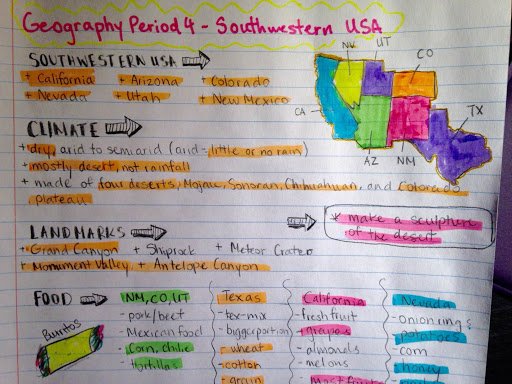 Geography Period 4 - Southwestern USA
SOUTHWESTERN USA
+ California + Arizona + Colorado
+ Nevada + Utah + New Mexico
NV UT CO
CA TX
AZ NM
CLIMATE
+ dry, arid to semiarid (arid = little or no rain)
+ mostly desert, not rainfall
+ made of four deserts, Mojav, Sonoran, Chihuahuan, and Colorado
plateau
* make a sculpture
of the desert
LANDMARKS
+ Grand Canyon + Shiprock + Meteor Crater
+ Monument Valley, + Antelope Canyon
FOOD
Burritos
NM, CO, UT
- pork/beef
- Mexican food
- Corn, chile
- tortillas
Texas
- tex-mix
- bigger portion
- wheat
- cotton
- grain
California
- fresh fruit
- grapes
- almonds
- melons
Nevada
- onion rings
- potatoes
- corn
- honey